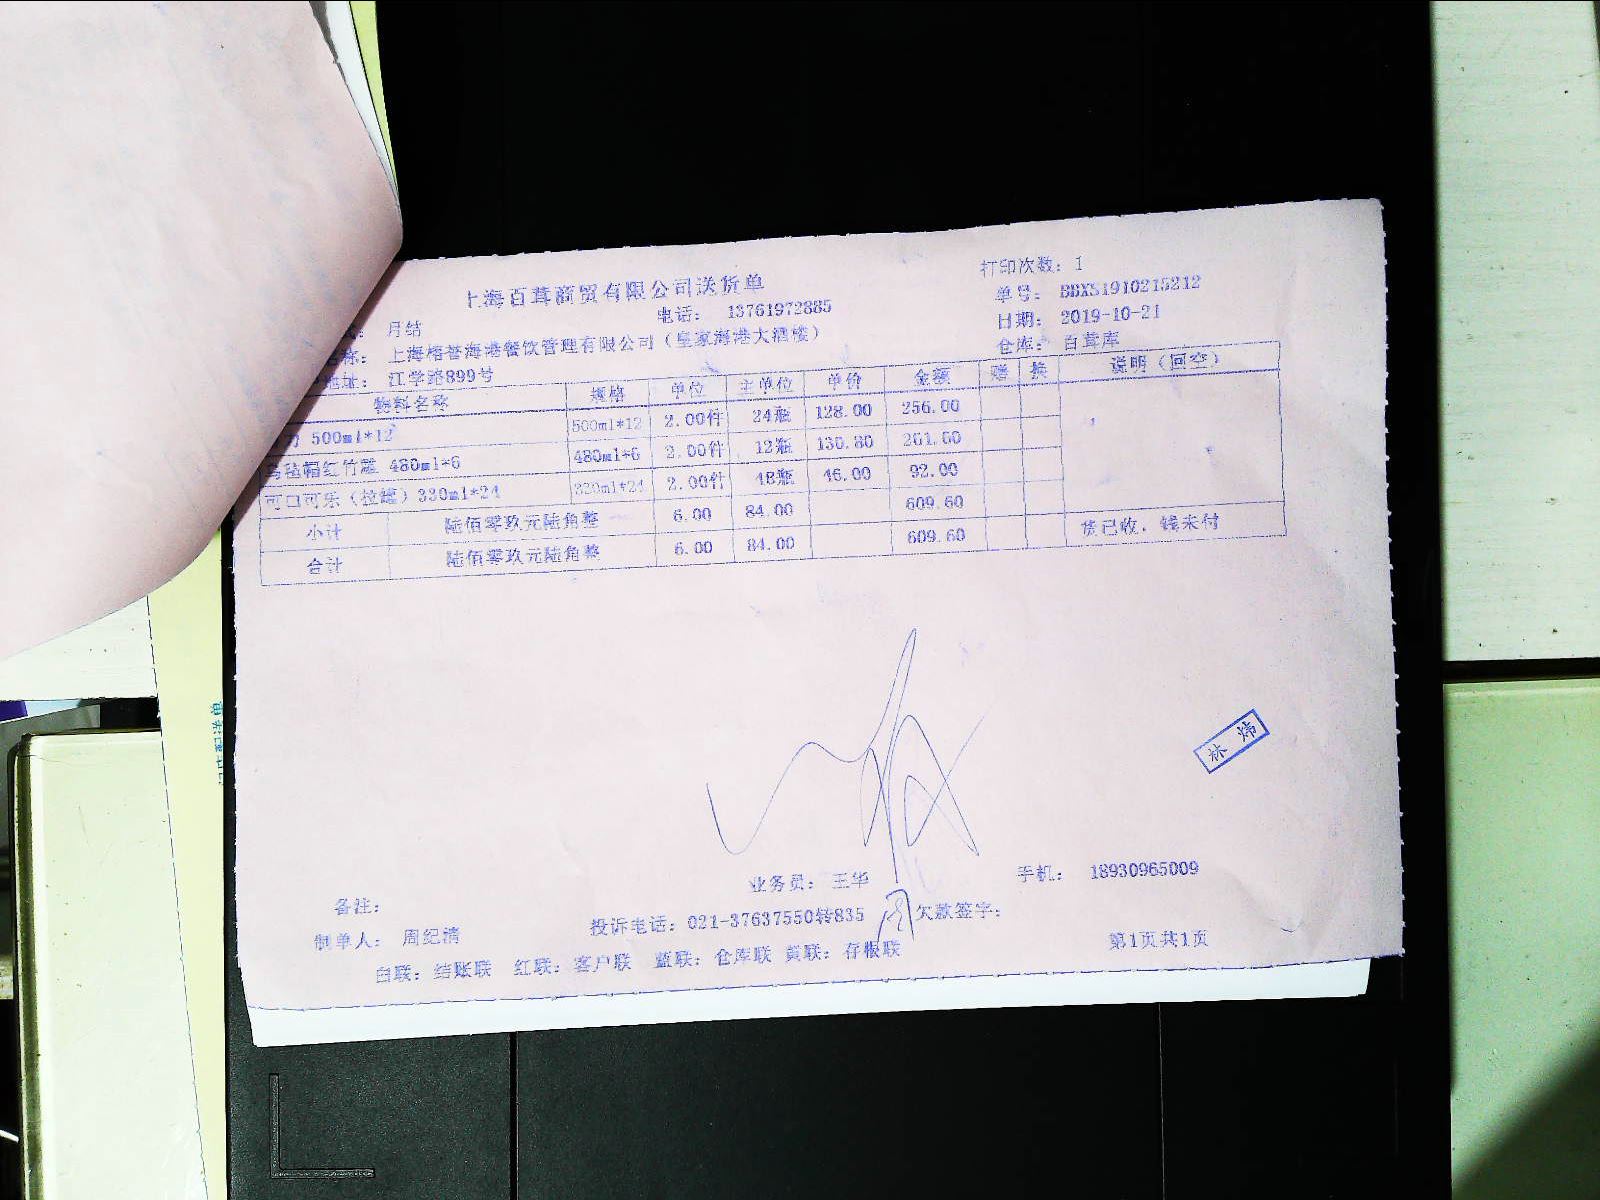 上海百茸商贸有限公司送货单
打印次数: 1
电话: 13761972885
单号: BBXS1910215212
月结
日期: 2019-10-21
称: 上海榕誉海港餐饮管理有限公司(皇家海港大酒楼)
仓库: 百茸库
地址: 江学路899号
物料名称 规格 单位 主单位 单价 金额 赠 换 说明(回空)
力 500ml*12 500ml*12 2.00件 24瓶 128.00 256.00
乌毡帽红竹雕 480ml*6 480ml*6 2.00件 12瓶 130.80 261.60
可口可乐(拉罐)330ml*24 330ml*24 2.00件 48瓶 46.00 92.00
小计 陆佰零玖元陆角整 6.00 84.00 609.60
合计 陆佰零玖元陆角整 6.00 84.00 609.60 货已收,钱未付
林炜
业务员: 王华 手机: 18930965009
备注:
投诉电话: 021-37637550转835 欠款签字:
制单人: 周纪清 第1页共1页
白联: 结账联 红联: 客户联 蓝联: 仓库联 黄联: 存根联